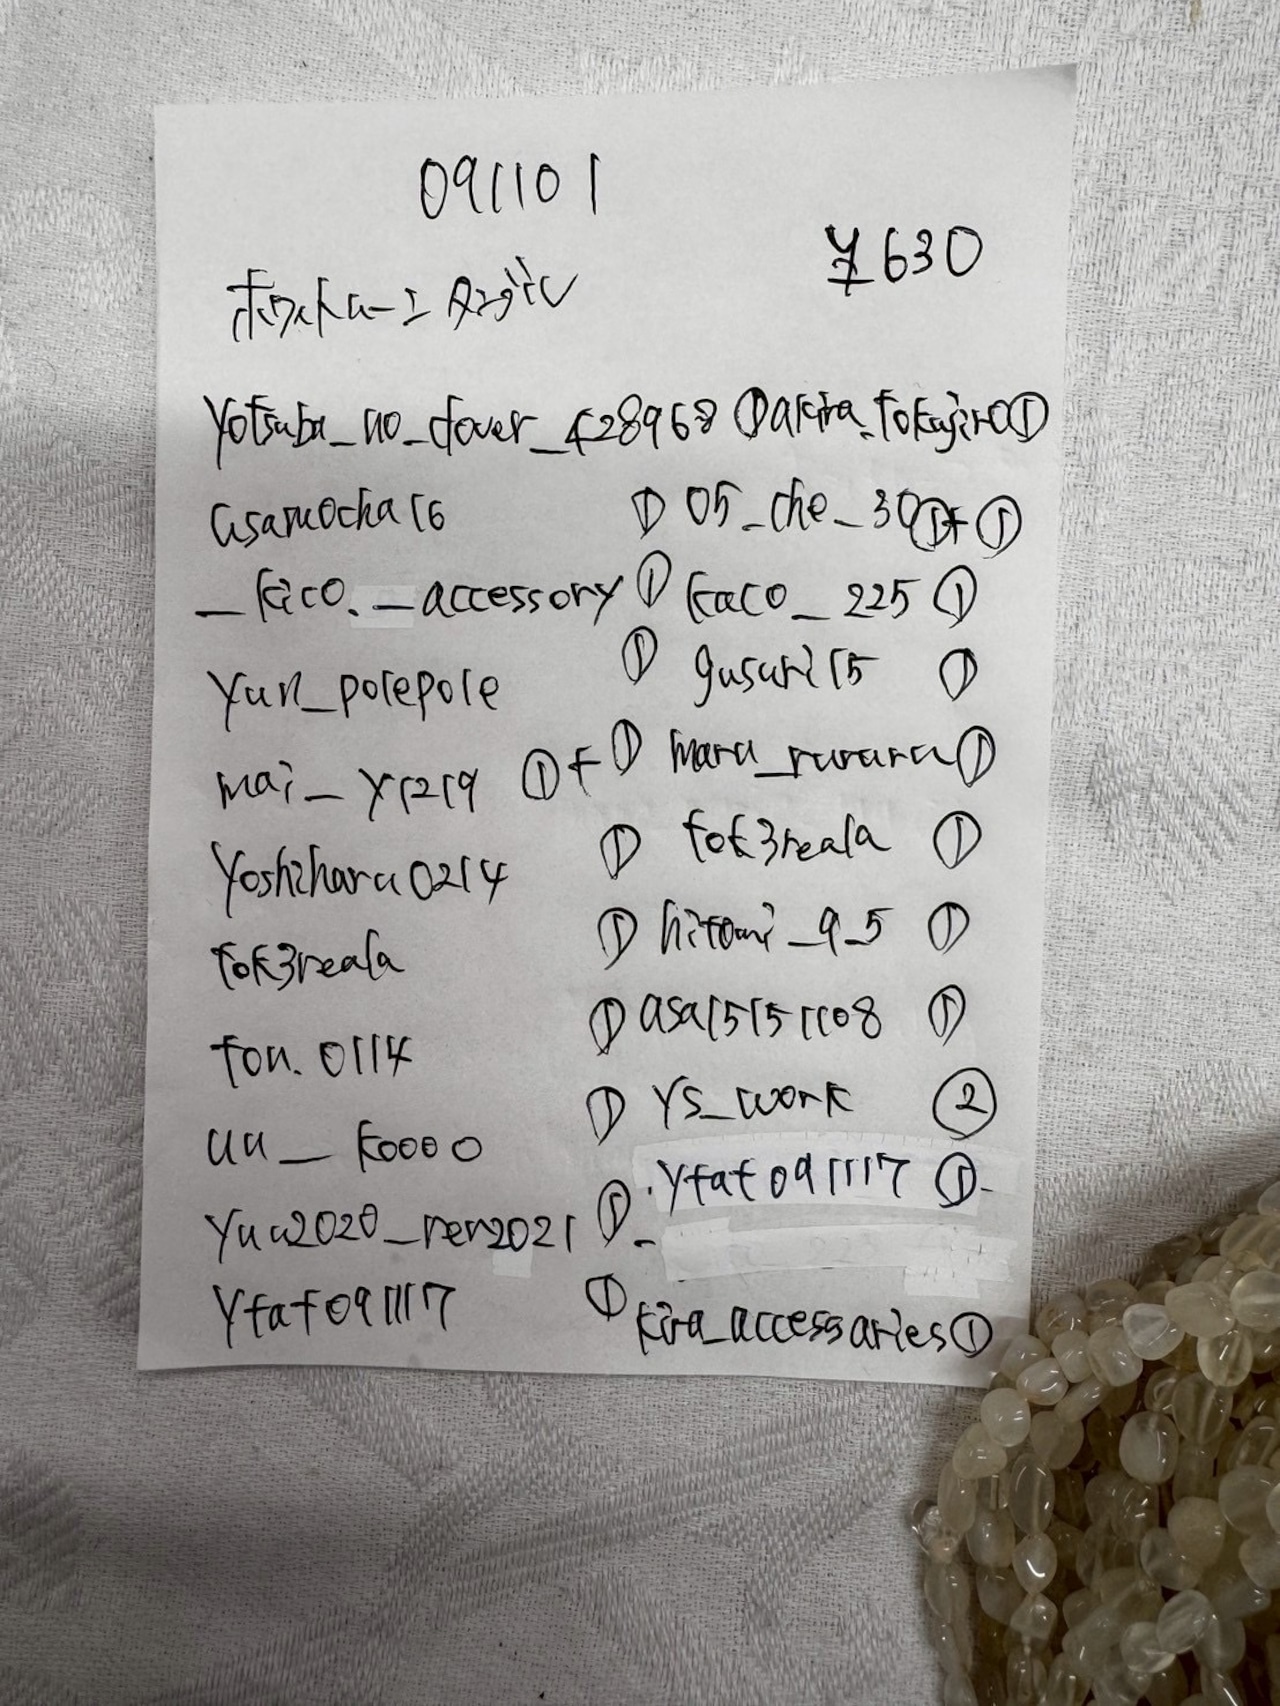 091101
¥630
ホワイトムーンタンブル
yotsuba_no_clover_428968 ① akira.tokujiro ①
asamocha16 ① 05_che_30 ①+①
_kico._accessory ① kaco_225 ①
yun_polepole ① gusuri15 ①
mai_y1219 ①+① maru_ruraru ①
yoshiharu0214 ① tok3reala ①
tok3reala ① hitomi_9_5 ①
tou.0114 ① asa15151108 ①
uu_koooo ① ys_work ②
yuu2020_ren2021 ① ytat091117 ①
ytat091117 ① kira_accessaries ①